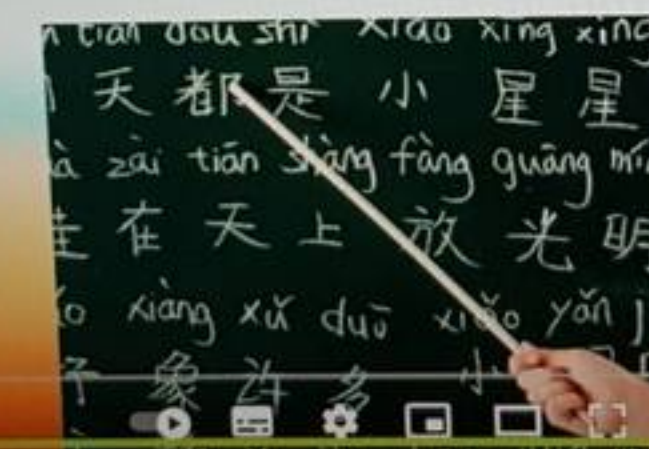 tian dou shi xiao xing xing
天 都 是 小 星 星
zài tiān shàng fàng guāng mí
在 天 上 放 光 明
xiàng xǔ duō xiǎo yǎn
象 许 多 小